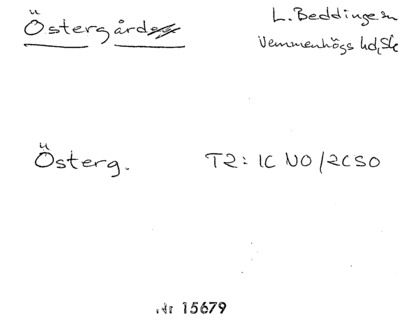 Östergård
L. Beddinge sn
Vemmenhögs hd, Sk
Österg.
T2: 1C NO/2CSO
Nr 15679